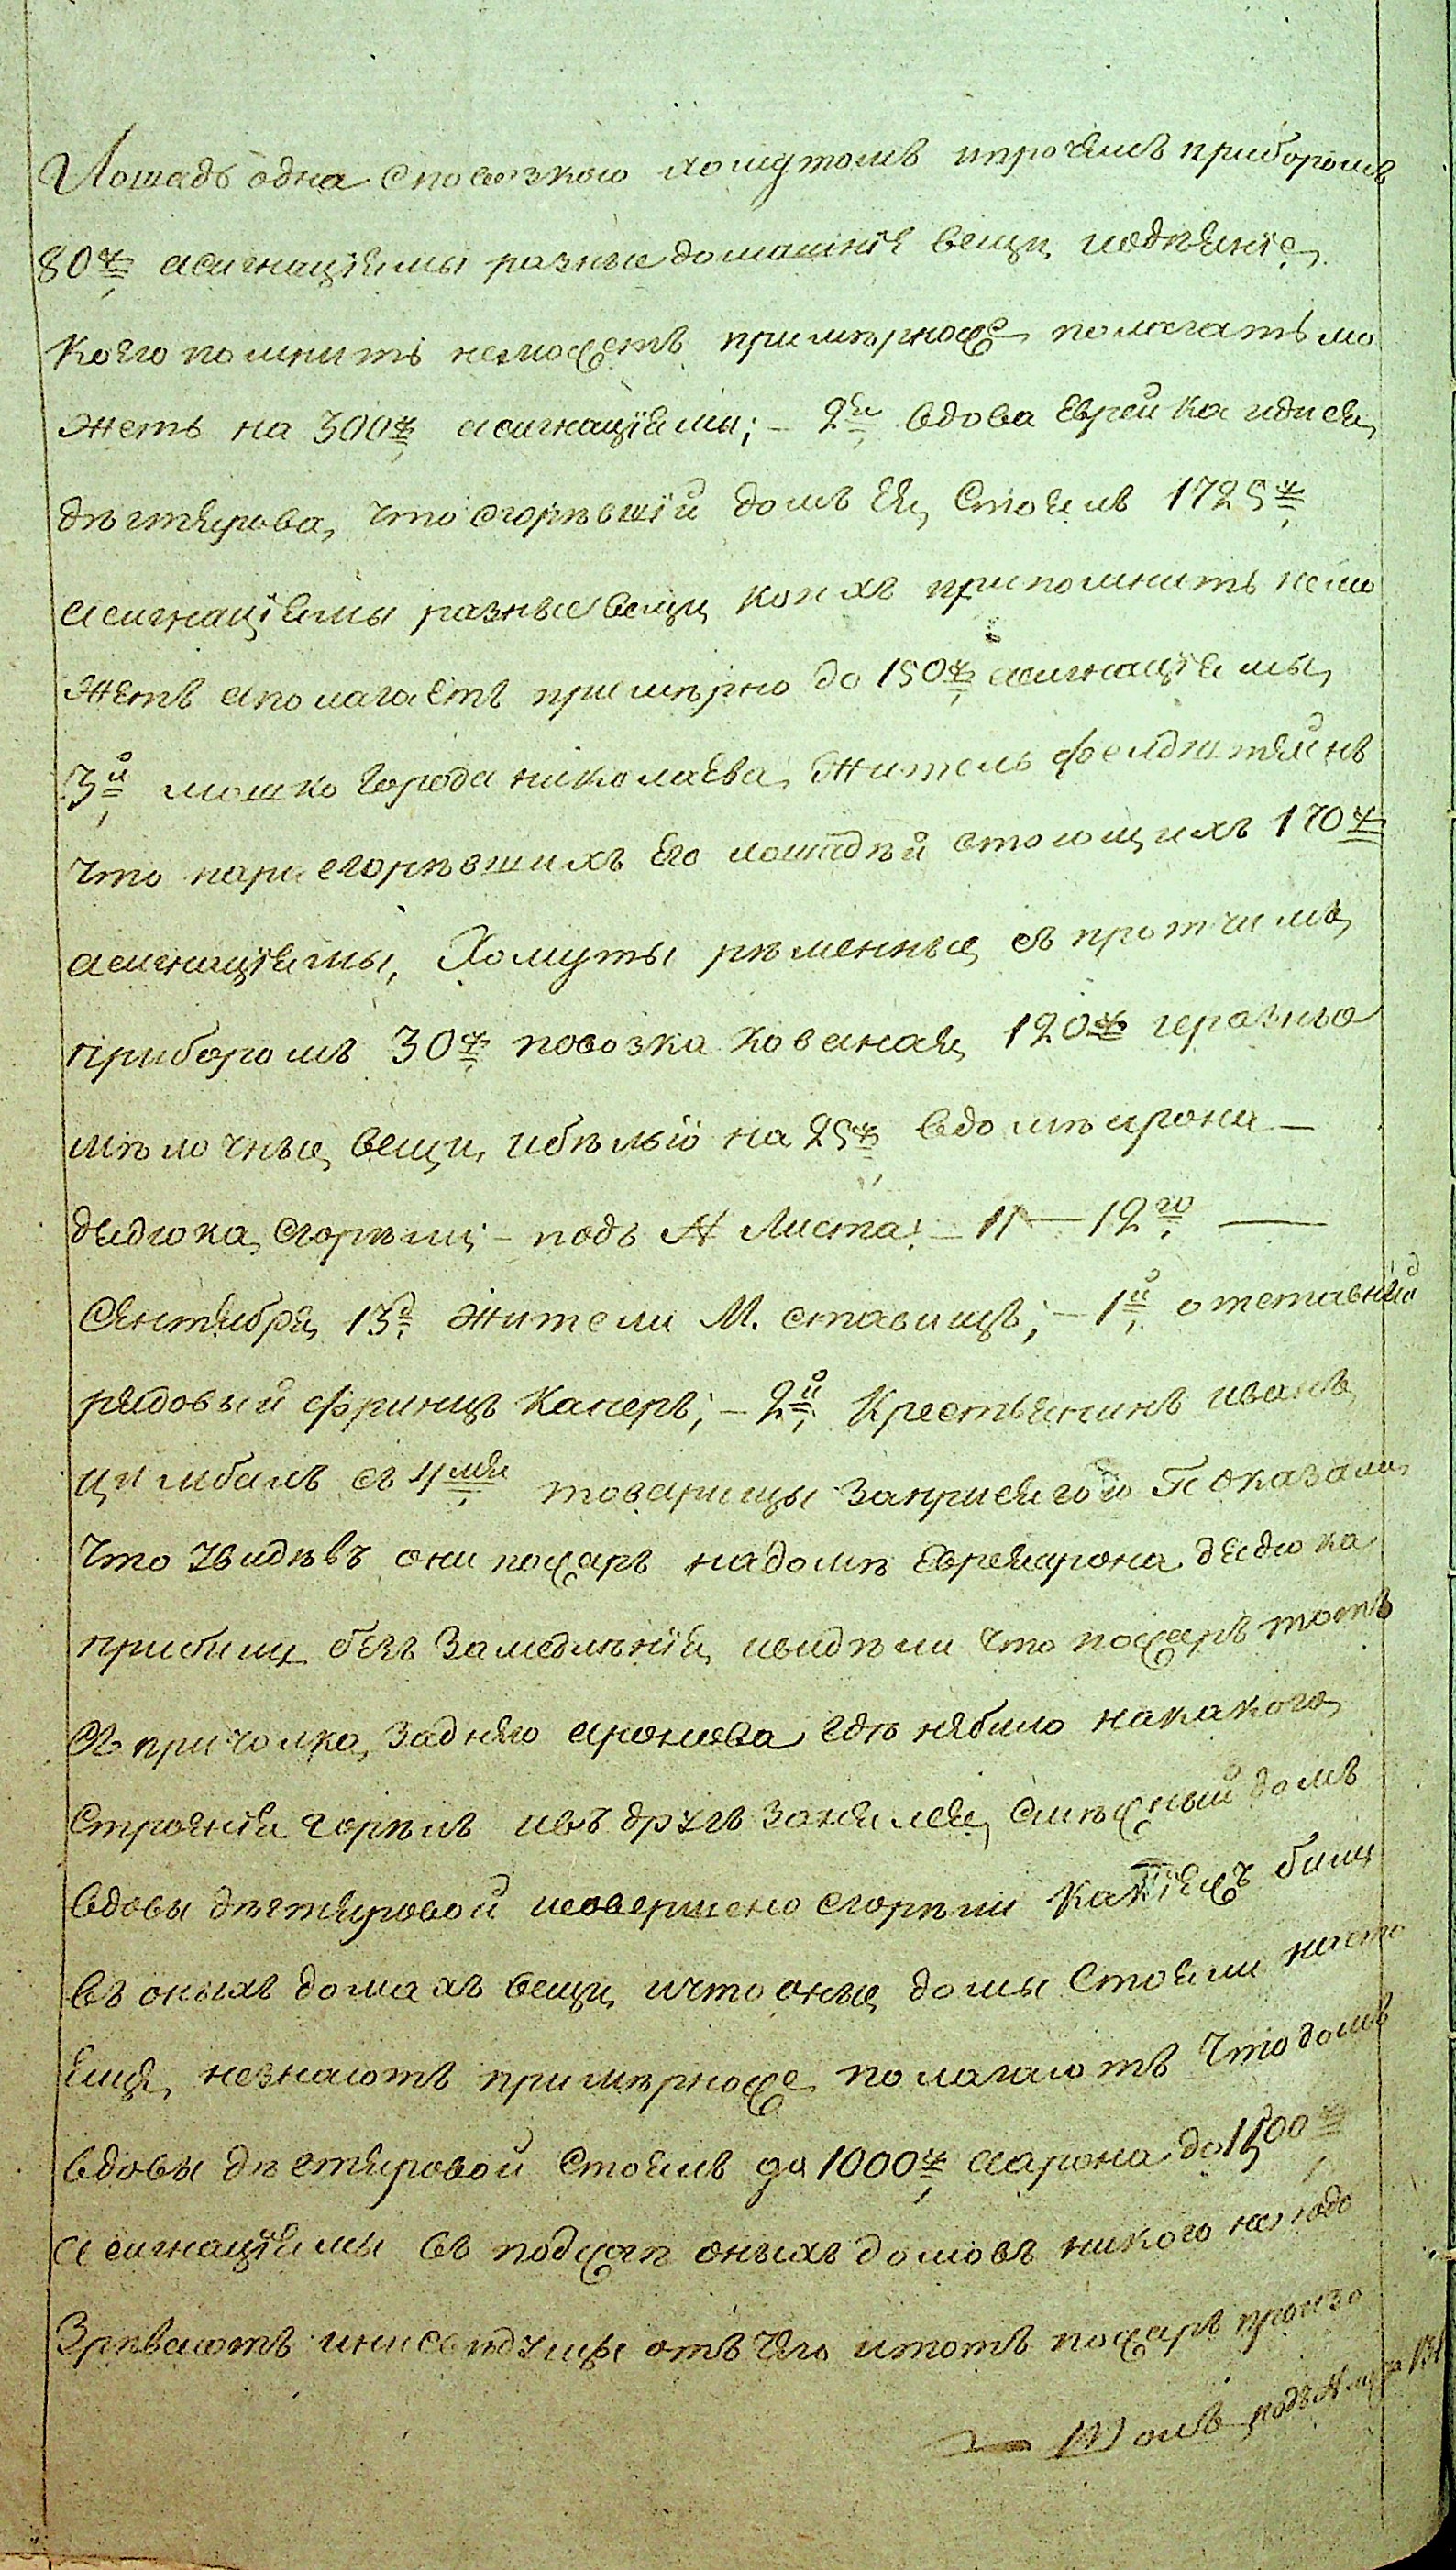 Лошадь одна сповозкою хомутомъ ипрочемъ приборомъ
80р асигнацiями разные домашнiе вещи иодѣянiе
коего помнить неможетъ примѣрноже полагать мо
жетъ на 300р асигнацiями; – 2я вдова Еврейка
дѣгтярова, что сгорѣвшiй домъ Ея Стоилъ 1725р
асигнацiями разные вещи коихъ припомнить немо
жетъ аполагаетъ примѣрно до 150р асигнацiями,
3й мошко города николаева житель фелдштейнъ
что пара сгорѣвшихъ Его лошадей стоющихъ 170р
асигнацiями, Хомуты рѣменные съ протчимъ
приборомъ 30р повозка кованая 120р иразные
мѣлочные вещи, ибѣльiо на 25р вдомѣ арона –
дядюка, сгорѣли; – подъ № Листа: – 11 — 12го —
Сентября 13д жители М. ставищъ; – 1й отставный
рядовый францъ Канеръ; – 2й Крестьянинъ иванъ
цимбалъ съ 4мя товарищы Заприсягою Показали
Что увидѣвъ они пожаръ надомѣ Еврея арона дядюка
прибили безъ Замедлѣнiя ивидѣли что пожаръ тотъ
съ причолка, задняго аронова гдѣ небило накакого
строенiя горѣлъ ивъ другъ занялся, смѣжный домъ
вдовы дѣгтяровой исовершено сгорѣли Какiежъ били
въ оныхъ домахъ вещи ичто оные домы Стояли насто
ящѣ, незнаютъ примѣрноже полагаютъ Что домъ
вдовы дѣгтяровой Стоилъ до 1000р аарона до 1500р
асигнацiями въ поджогѣ оныхъ домовъ никого неподо
Зрѣваютъ инисвѣдущы отъ чего итотъ пожаръ произо
подъ № листа 13